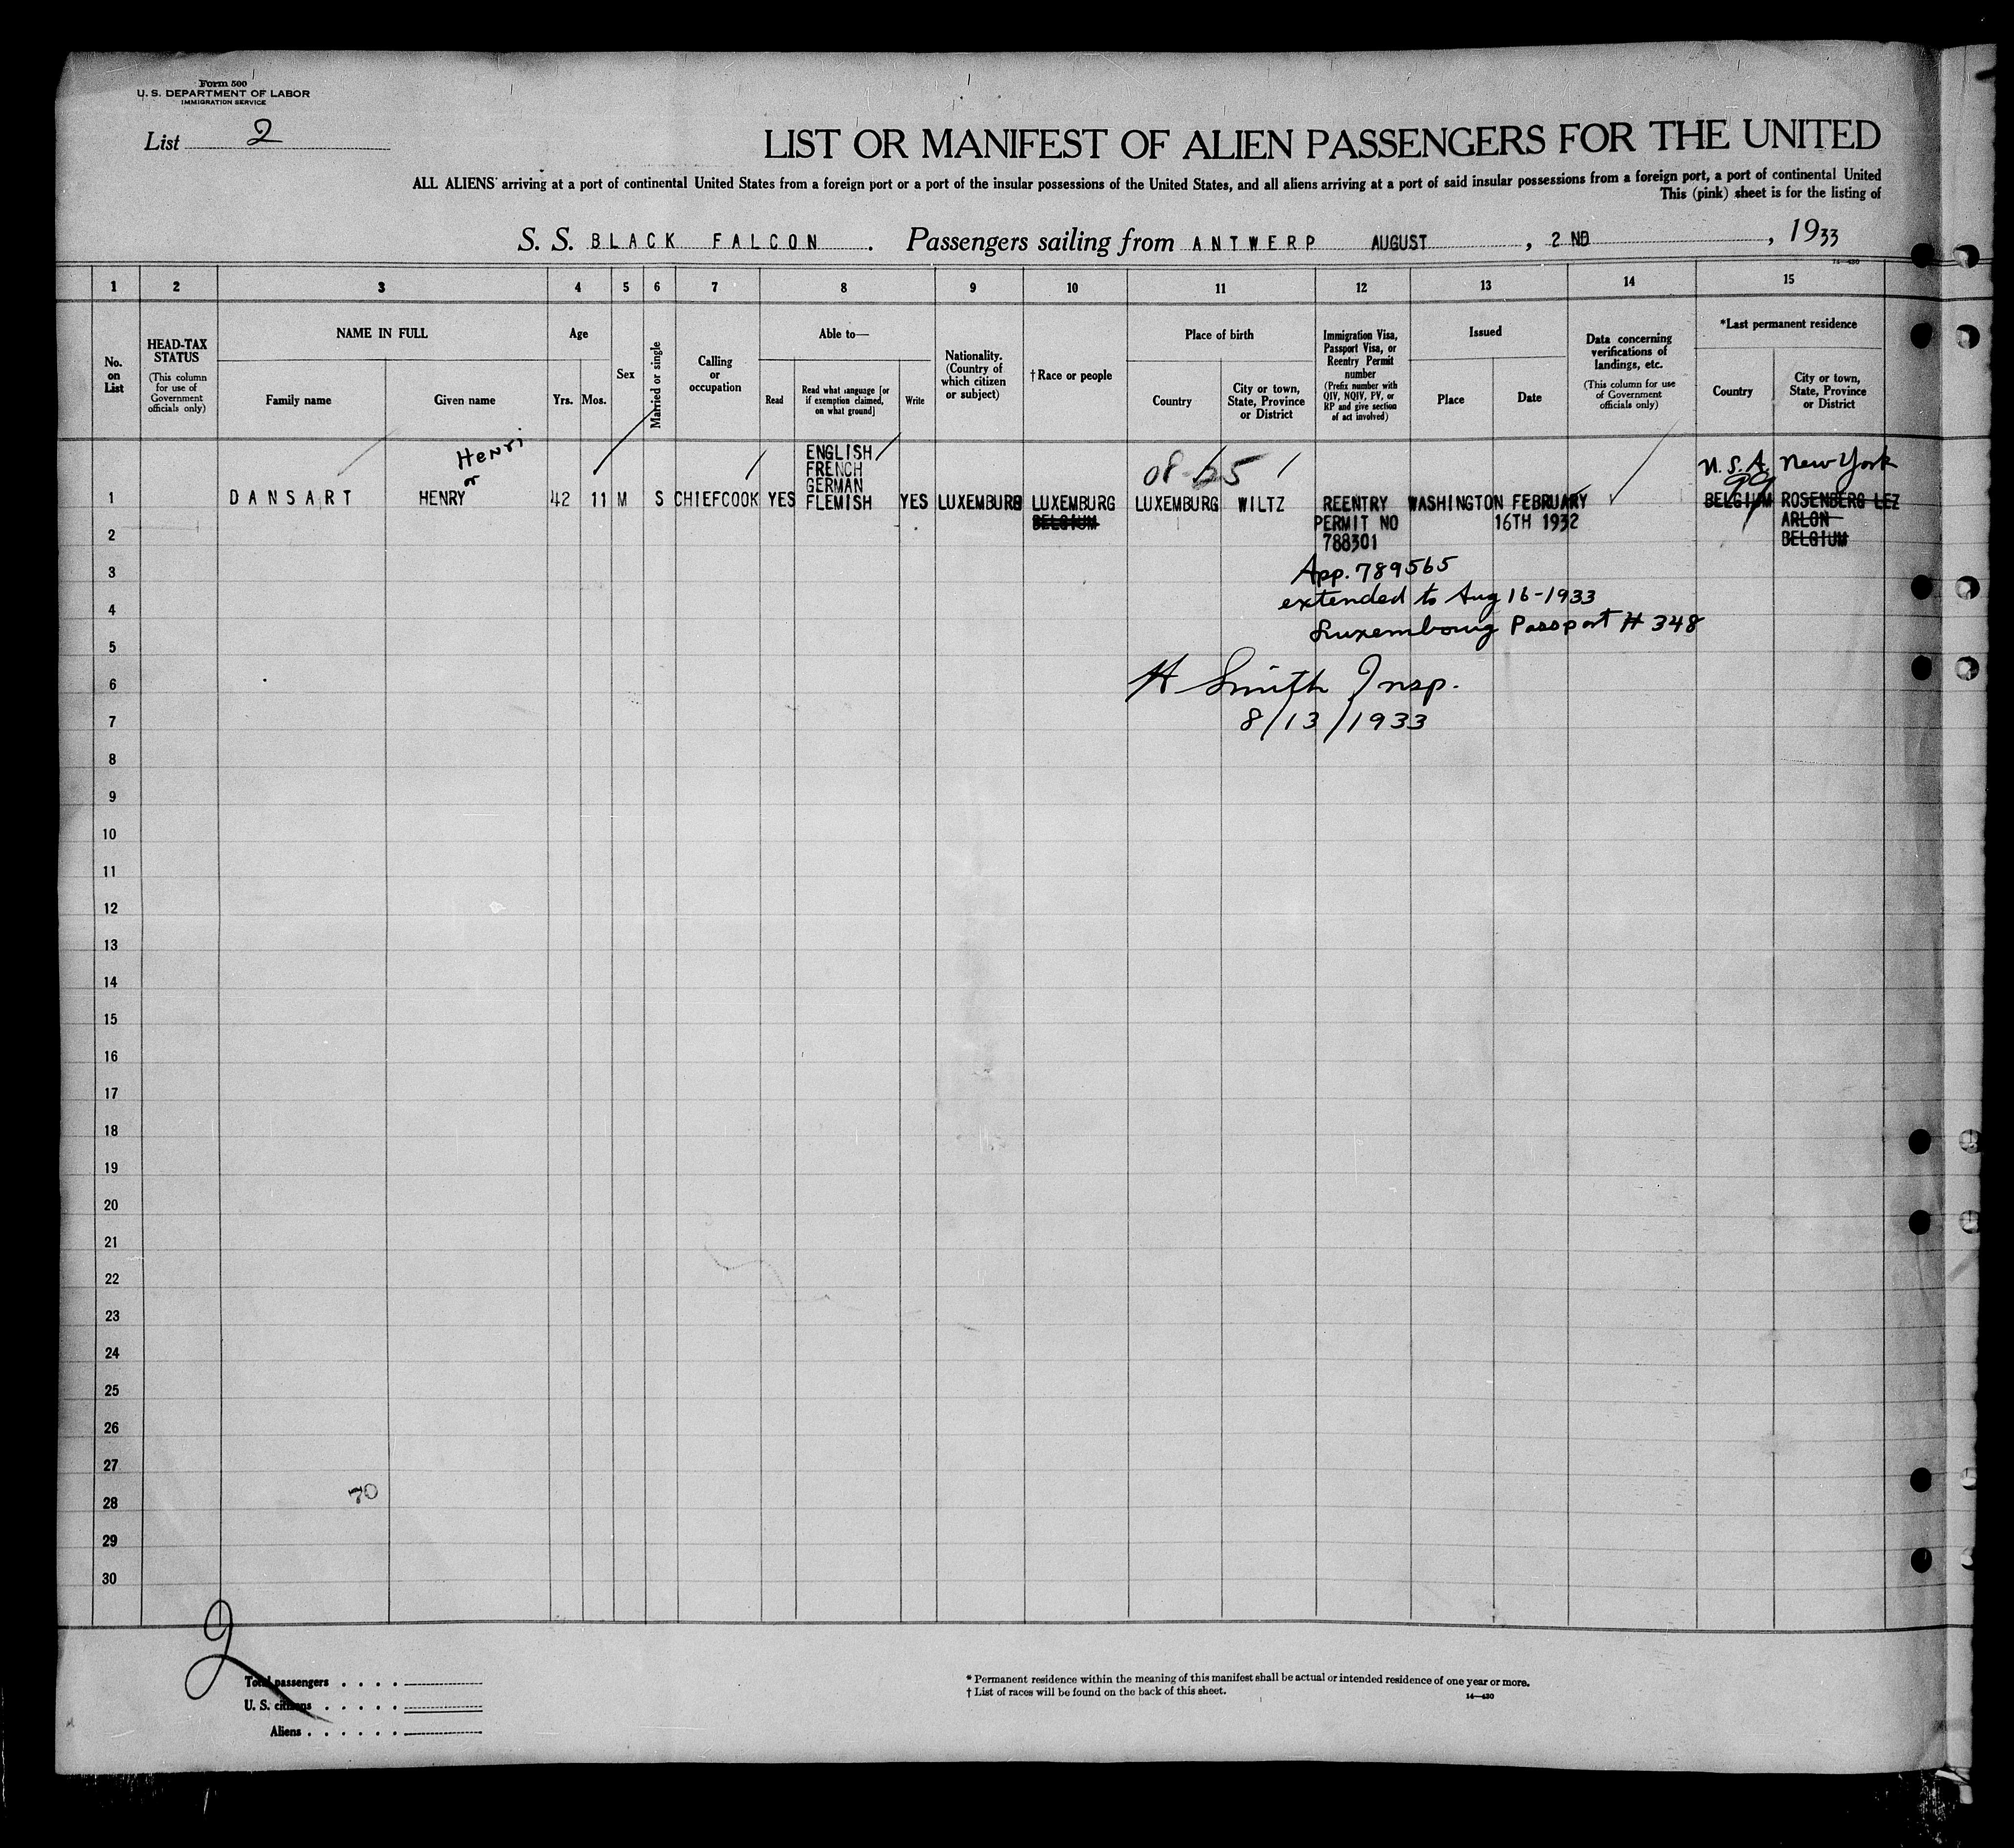 Form 500
U. S. DEPARTMENT OF LABOR
IMMIGRATION SERVICE
List 2
LIST OR MANIFEST OF ALIEN PASSENGERS FOR THE UNITED
ALL ALIENS arriving at a port of continental United States from a foreign port or a port of the insular possessions of the United States, and all aliens arriving at a port of said insular possessions from a foreign port, a port of continental United
This (pink) sheet is for the listing of
S. S. BLACK FALCON . Passengers sailing from ANTWERP AUGUST , 2 ND , 1933
14—430
1 2 3 4 5 6 7 8 9 10 11 12 13 14 15
No. on List
HEAD-TAX STATUS
(This column for use of Government officials only)
NAME IN FULL
Family name
Given name
Age
Yrs. Mos.
Sex
Married or single
Calling or occupation
Able to—
Read
Read what language [or if exemption claimed, on what ground]
Write
Nationality. (Country of which citizen or subject)
† Race or people
Place of birth
Country
City or town, State, Province or District
Immigration Visa, Passport Visa, or Reentry Permit number
(Prefix number with QIV, NQIV, PV, or RP and give section of act involved)
Issued
Place
Date
Data concerning verifications of landings, etc.
(This column for use of Government officials only)
*Last permanent residence
Country
City or town, State, Province or District
Henri
or
ENGLISH
FRENCH
GERMAN
U.S.A. New York
1 DANSART HENRY 42 11 M S CHIEFCOOK YES FLEMISH YES LUXEMBURG LUXEMBURG LUXEMBURG WILTZ REENTRY WASHINGTON FEBRUARY BELGIUM ROSENBERG LEZ
BELGIUM PERMIT NO 16TH 1932 ARLON
2 788301 BELGIUM
3 App. 789565
4 extended to Aug 16-1933
5 Luxembourg Passport # 348
6 H Smith Insp.
7 8/13/1933
8
9
10
11
12
13
14
15
16
17
18
19
20
21
22
23
24
25
26
27
70
28
29
30
2
Total passengers . . . .
U. S. citizens . . . . .
Aliens . . . . . .
* Permanent residence within the meaning of this manifest shall be actual or intended residence of one year or more.
† List of races will be found on the back of this sheet.
14—430